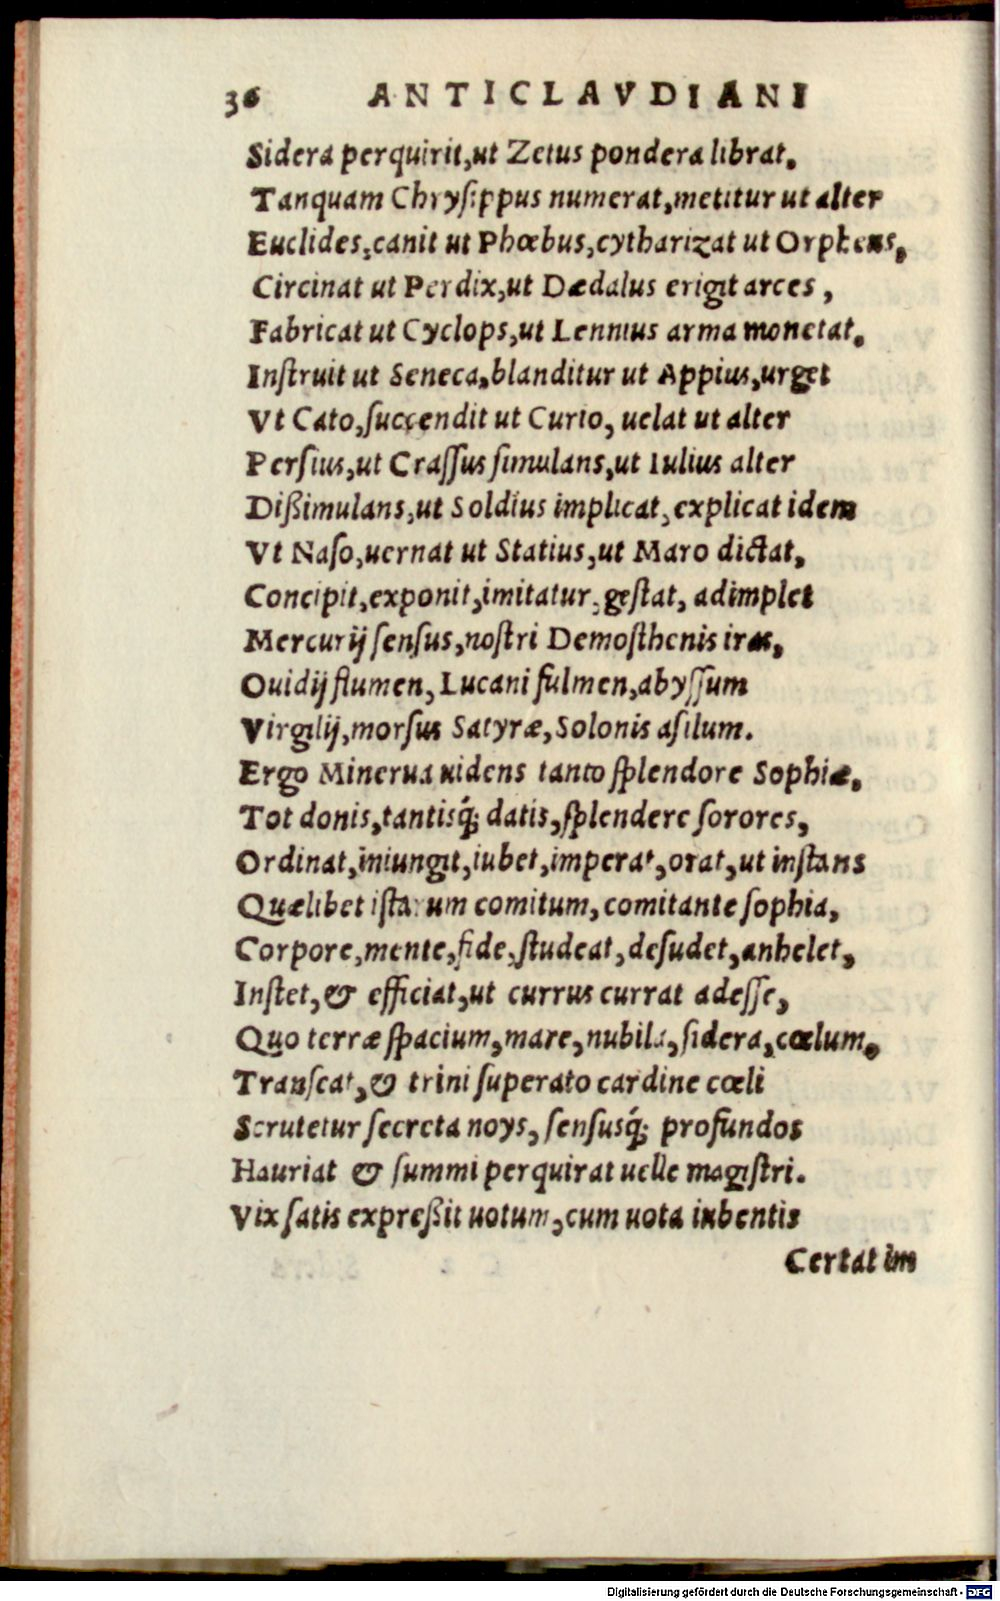 36 ANTICLAVDIANI
Sidera perquirit,ut Zetus pondera librat.
Tanquam Chrysippus numerat,metitur ut alter
Euclides,canit ut Phœbus,cytharizat ut Orpheus,
Circinat ut Perdix,ut Dædalus erigit arces,
Fabricat ut Cyclops,ut Lennius arma monetat.
Inſtruit ut Seneca,blanditur ut Appius,urget
Vt Cato,ſuccendit ut Curio, uelat ut alter
Perſius,ut Craſſus ſimulans,ut Iulius alter
Dißimulans,ut Soldius implicat,explicat idem
Vt Naſo,uernat ut Statius,ut Maro dictat,
Concipit,exponit,imitatur,geſtat, adimplet
Mercurij ſenſus,noſtri Demoſthenis iras,
Ouidij flumen, Lucani fulmen,abyſſum
Virgilij,morſus Satyræ,Solonis aſilum.
Ergo Minerua uidens tanto ſplendore Sophiæ,
Tot donis,tantisq́; datis,ſplendere ſorores,
Ordinat,iniungit,iubet,imperat,orat,ut inſtans
Quælibet iſtarum comitum,comitante ſophia,
Corpore,mente,fide,ſtudeat,deſudet,anhelet,
Inſtet,& efficiat,ut currus currat adeſſe,
Quo terræ ſpacium,mare,nubila,ſidera,cœlum,
Tranſeat,& trini ſuperato cardine cœli
Scrutetur ſecreta noys, ſenſusq́; profundos
Hauriat & ſummi perquirat uelle magiſtri.
Vix ſatis expreßit uotum,cum uota iubentis
Certatim
Digitalisierung gefördert durch die Deutsche Forschungsgemeinschaft - DFG